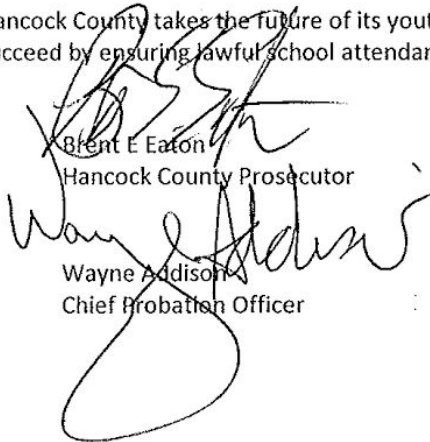 ancock County takes the future of its yout
ucceed by ensuring lawful school attendan
Brent E Eaton
Hancock County Prosecutor
Wayne Addison
Wayne Addison
Chief Probation Officer